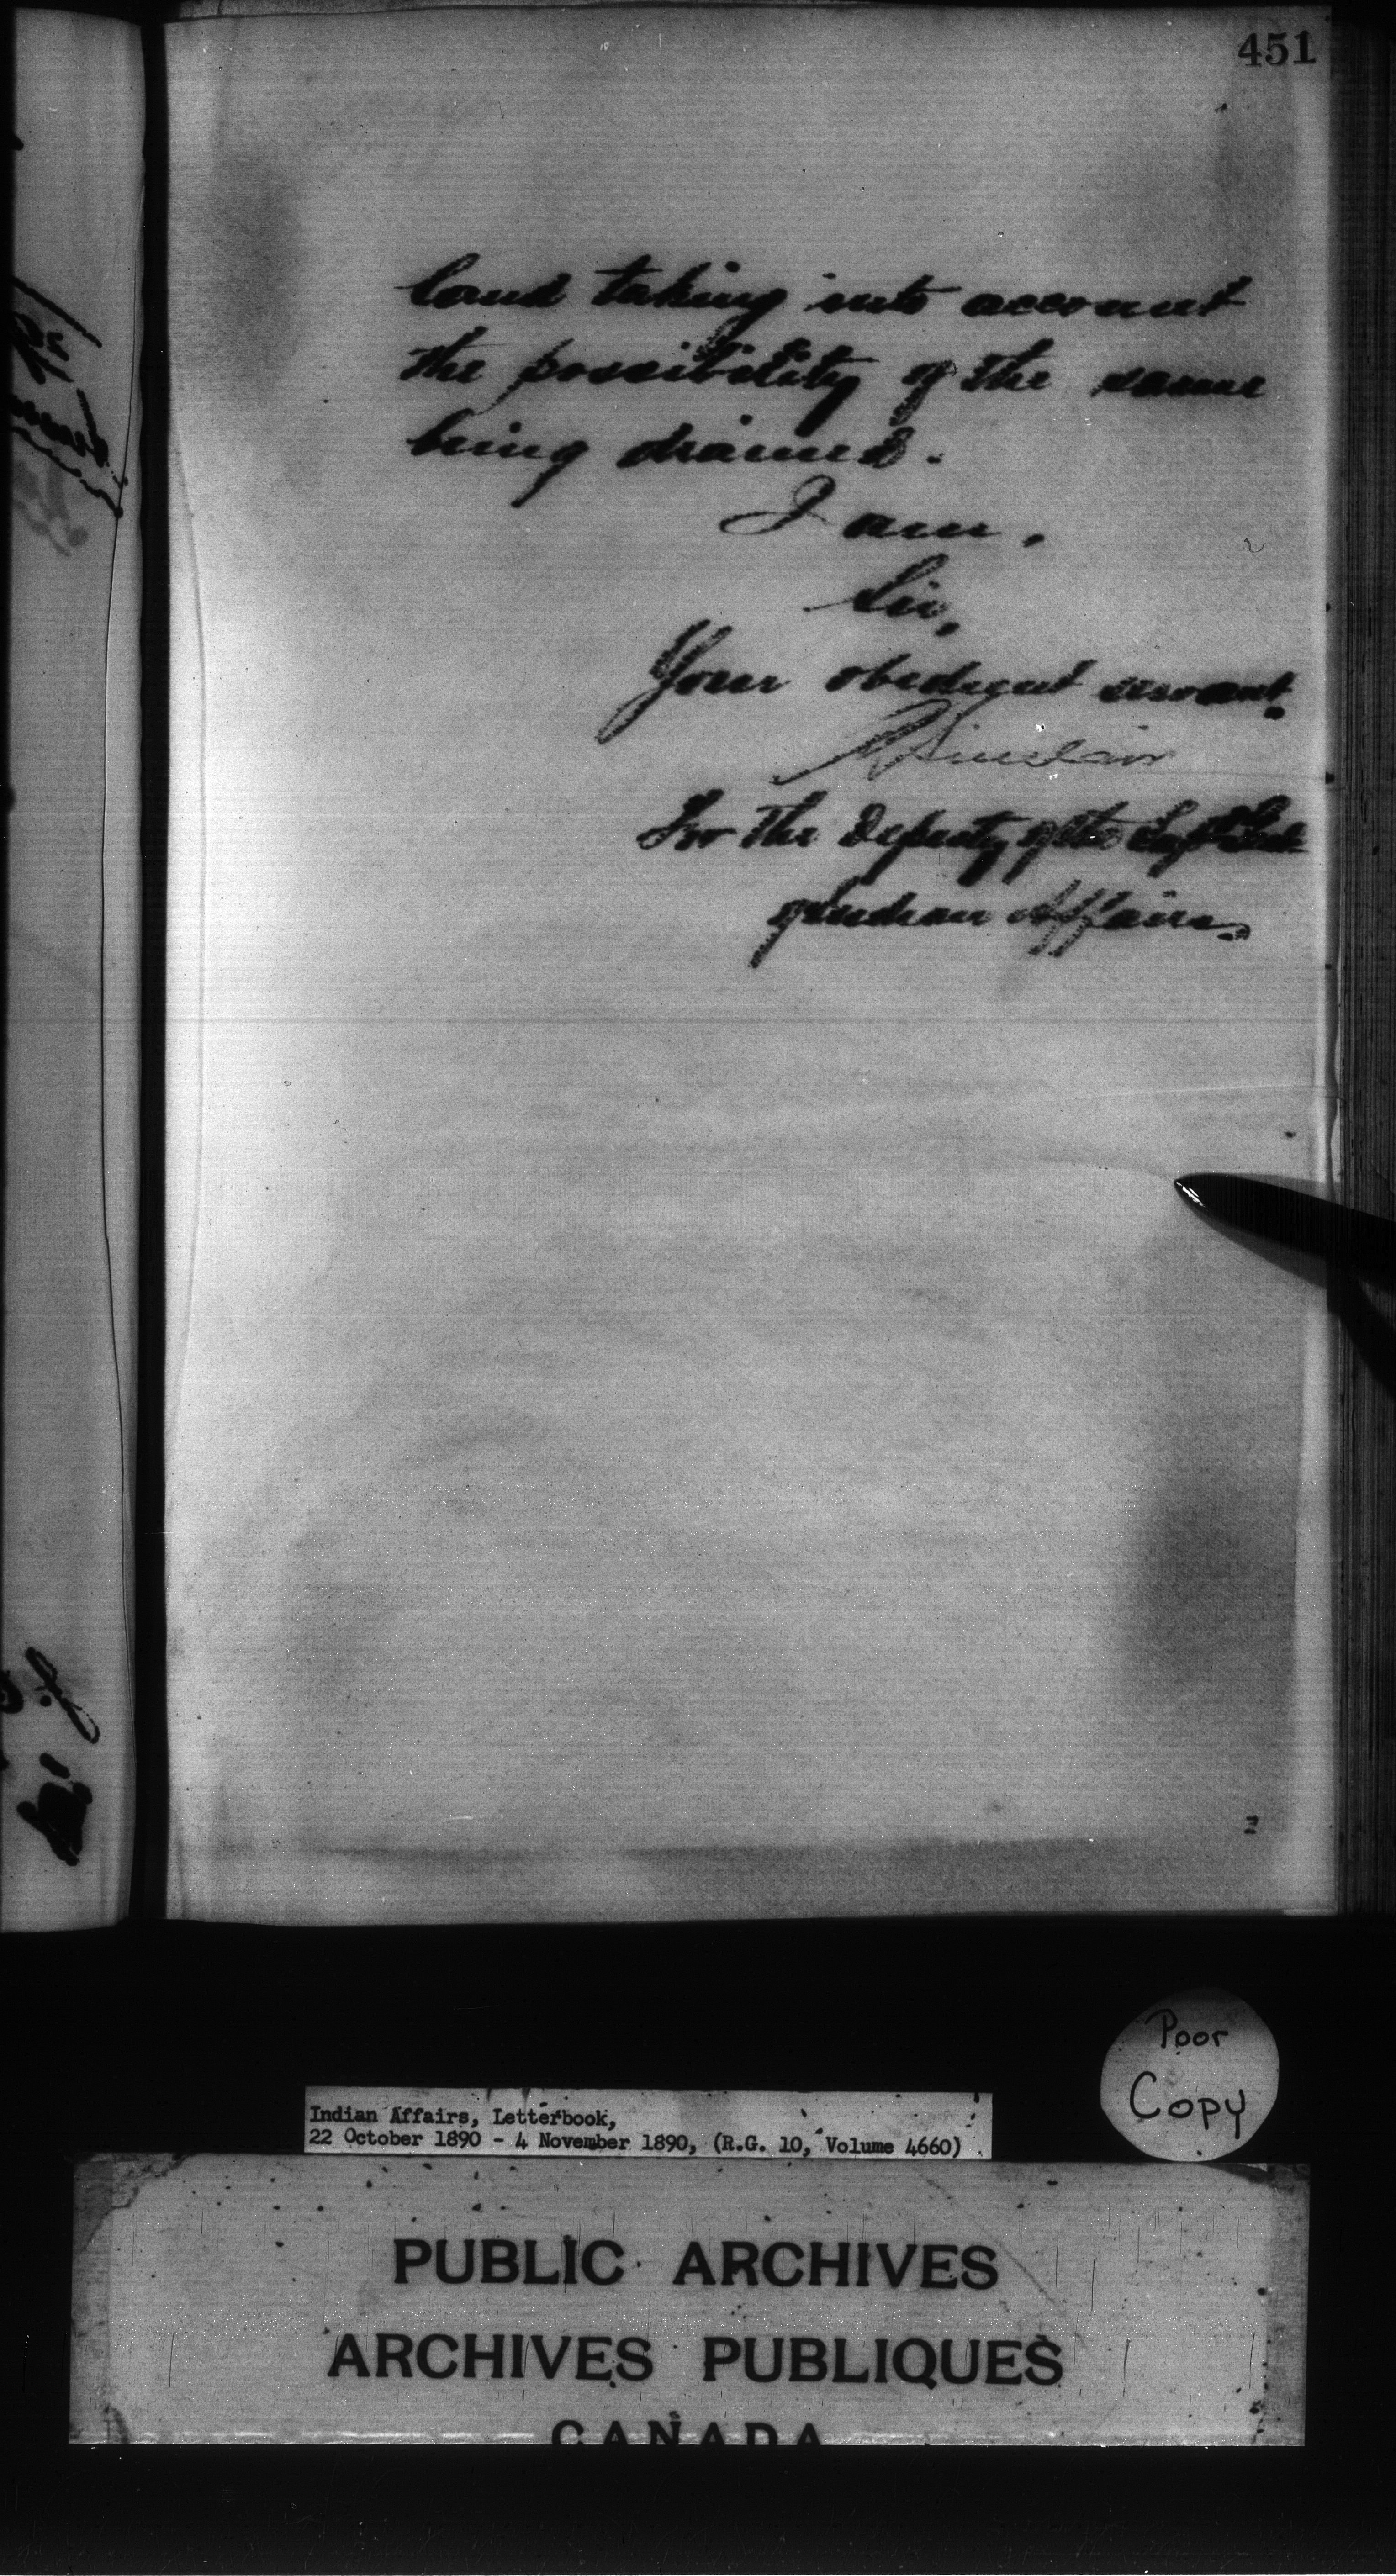 451
land taking into account
the possibility of the same
being drained.
I am,
Sir,
Your obedient servant.
R Sinclair
For the Deputy of the Supt Genl
of Indian Affairs.
Poor
Copy
Indian Affairs, Letterbook,
22 October 1890 - 4 November 1890, (R.G. 10, Volume 4660)
PUBLIC ARCHIVES
ARCHIVES PUBLIQUES
CANADA